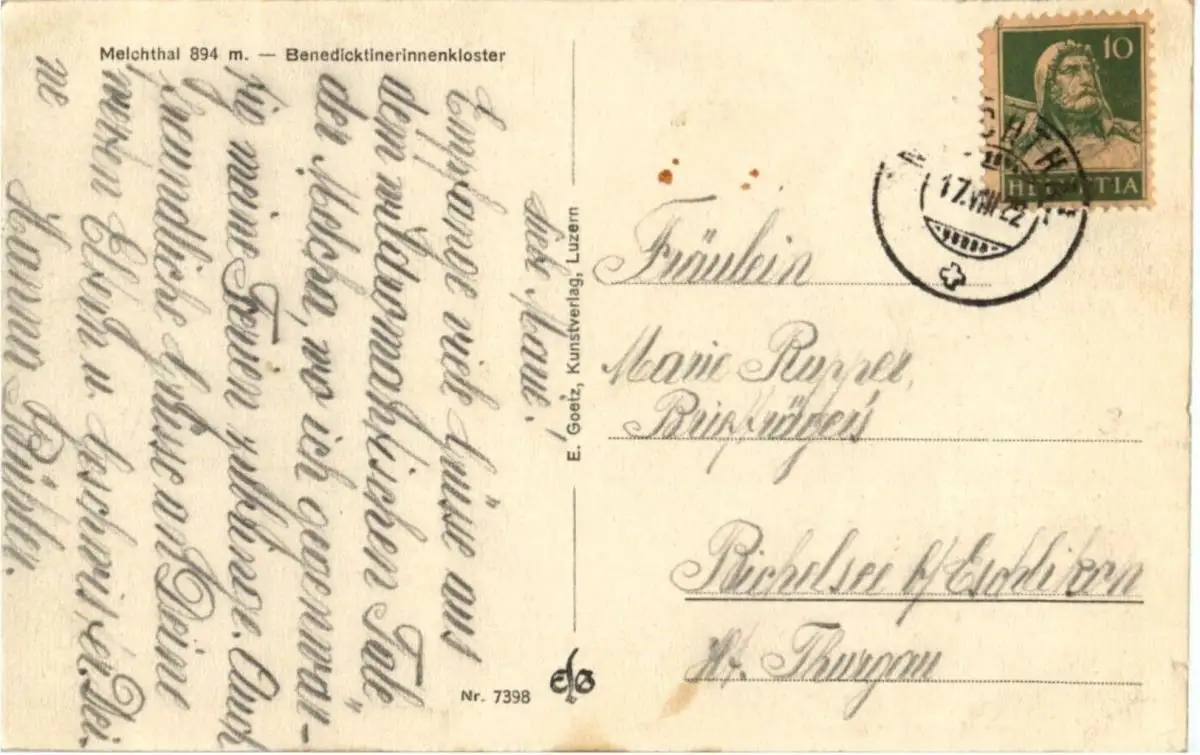 Melchthal 894 m. — Benedicktinerinnenkloster
Lieb Marie!
Empfange viele Grüsse aus
dem wildromantischen Tale
der Melcha, wo ich gegenwär-
tig meine Ferien verbringe. Auch
freundliche Grüsse an Deine
werten Eltern u. Geschwister. Dei-
ne
Bühler.
E. Goetz, Kunstverlag, Luzern
Nr. 7398
EGL
10
HELVETIA
17.VIII.22
Fräulein
Marie Rupper,
Briefträgers
Bichelsee b/Eschlikon
Kt. Thurgau